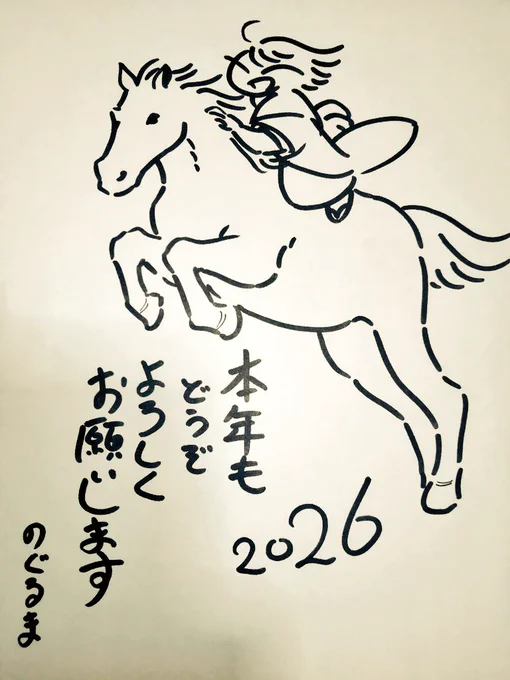 本年も
どうぞ
よろしく
お願いします
のぐるま
2026